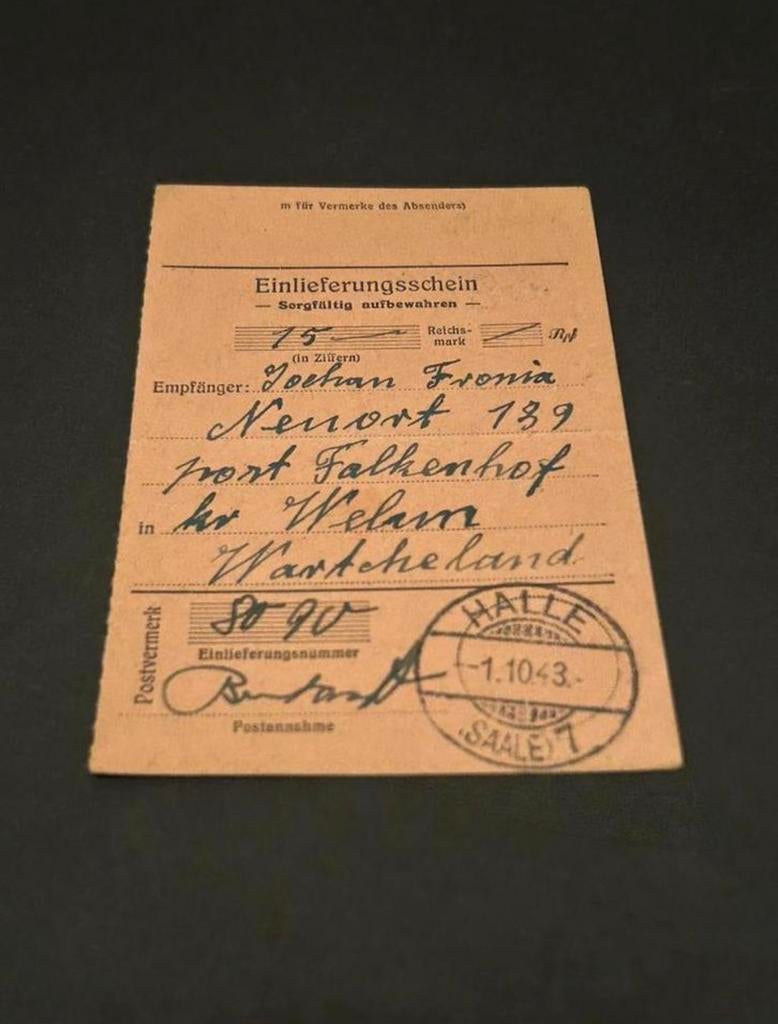 m für Vermerke des Absenders)
Einlieferungsschein
— Sorgfältig aufbewahren —
15 — Reichsmark — Rpf
(in Ziffern)
Empfänger: Jochan Fronia
Neuort 139
post Falkenhof
in kr Welun
Wartcheland
Postvermerk
8090
Einlieferungsnummer
Postannahme
HALLE
-1.10.43.-
(SAALE) 7